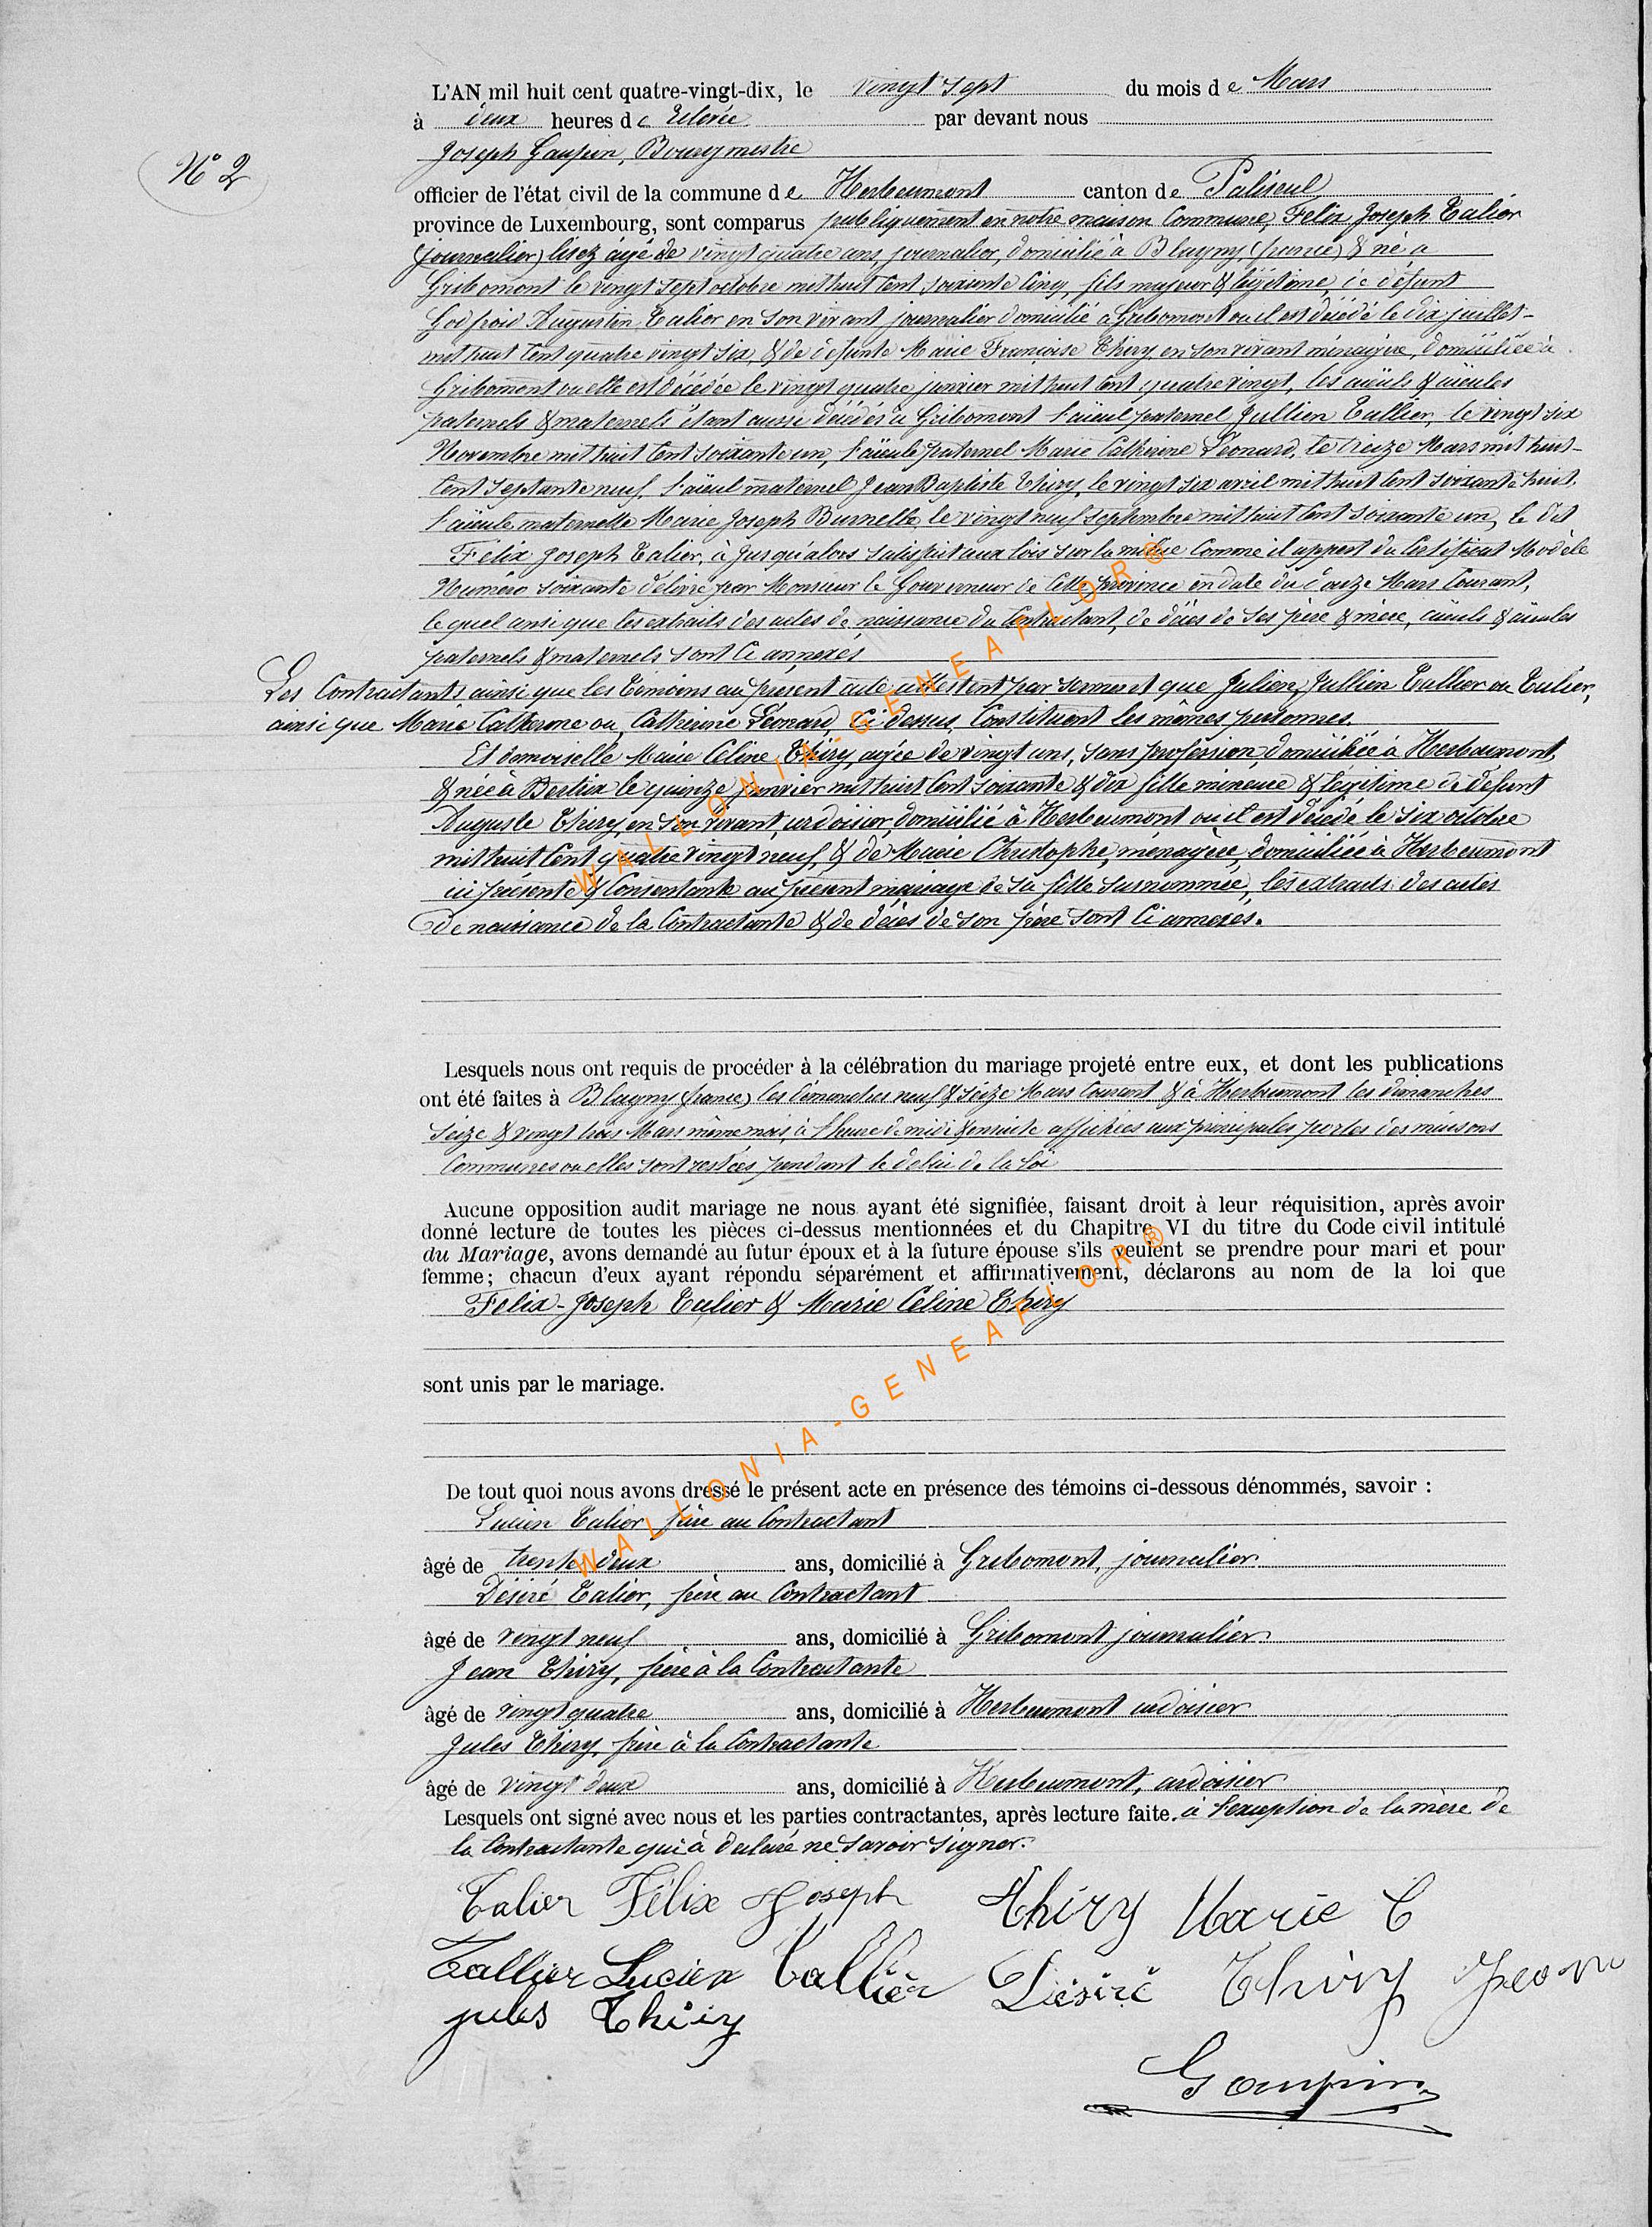 N° 2
L'AN mil huit cent quatre-vingt-dix, le vingt sept du mois de Mars
à deux heures de Relevée par devant nous
Joseph Gaupin, Bourgmestre
officier de l'état civil de la commune de Herbeumont canton de Paliseul
province de Luxembourg, sont comparus publiquement en notre maison Commune, Felix Joseph Talier
(journalier) lisez âgé de vingt quatre ans, journalier, domicilié à Blagny (france) & né à
Gribomont le vingt sept octobre mil huit Cent soixante cinq, fils majeur & légitime de défunt
Godfroid Augustin Talier en son vivant journalier domicilié à Gribomont ou il est décédé le dix juillet-
mil huit Cent quatre vingt six, & de défunte Marie Françoise Thiry en son vivant ménagère, domiciliée à
Gribomont ou elle est décédée le vingt quatre janvier mil huit Cent quatre vingt, les aïeuls & aïeules
paternels & maternels étant aussi décédés à Gribomont l'aïeul paternel Jullien Tallier, le vingt six
Novembre mil huit Cent soixante un, l'aïeule paternel Marie Catherine Léonard, le treize Mars mil huit-
Cent septante neuf, l'aïeul maternel Jean Baptiste Thiry, le vingt six avril mil huit Cent soixante huit.
l'aïeule maternelle Marie Joseph Burnelle le vingt neuf septembre mil huit Cent soixante un, le dit
Félix Joseph Talier, à jusqu'alors satisfait aux lois sur la milice Comme il appert du Certificat Modèle
Numéro soixante délivré par Monsieur le Gouverneur de Cette province en date du douze Mars Courant,
lequel ainsi que les extraits des actes de naissance du Contractant, de décès de ses père & mère, aïeuls & aïeules
paternels & maternels sont Ci annexés
Les Contractants ainsi que les Témoins au présent acte attestent par serment que Julien, Jullien Tallier ou Talier,
ainsi que Marie Catherine ou Catherine Léonard, Ci-dessus, Constituent les mêmes personnes.
Et demoiselle Marie Céline Thiry, agée de vingt ans, sans profession, domiciliée à Herbeumont,
& née à Bertrix le quinze janvier mil huit Cent soixante & dix fille mineure & légitime de défunt
Auguste Thiry, en son vivant, ardoisier, domicilié à Herbeumont où il est décédé le six octobre
mil huit Cent quatre vingt neuf, & de Marie Christophe, ménagère, domiciliée à Herbeumont
ici présente & Consentante au présent mariage de sa fille susnommée, les extraits des actes
de naissance de la Contractante & de décès de son père sont Ci annexés.
Lesquels nous ont requis de procéder à la célébration du mariage projeté entre eux, et dont les publications
ont été faites à Blagny (france) les dimanches neuf & seize Mars Courant & à Herbeumont les dimanches
seize & vingt trois Mars même mois, à l'heure de midi & ensuite affichées aux principales portes des maisons
Communes ou elles sont restées pendant le délai de la loi
Aucune opposition audit mariage ne nous ayant été signifiée, faisant droit à leur réquisition, après avoir
donné lecture de toutes les pièces ci-dessus mentionnées et du Chapitre VI du titre du Code civil intitulé
du Mariage, avons demandé au futur époux et à la future épouse s'ils veulent se prendre pour mari et pour
femme; chacun d'eux ayant répondu séparément et affirmativement, déclarons au nom de la loi que
Felix-Joseph Talier & Marie Céline Thiry
sont unis par le mariage.
De tout quoi nous avons dressé le présent acte en présence des témoins ci-dessous dénommés, savoir :
Lucien Talier, frère au Contractant
âgé de trente deux ans, domicilié à Gribomont, journalier
Désiré Talier, frère au Contractant
âgé de vingt neuf ans, domicilié à Gribomont journalier
Jean Thiry, frère à la Contractante
âgé de vingt quatre ans, domicilié à Herbeumont ardoisier
Jules Thiry, frère à la Contractante
âgé de vingt deux ans, domicilié à Herbeumont, ardoisier
Lesquels ont signé avec nous et les parties contractantes, après lecture faite. à l'exception de la mère de
la Contractante qui à déclaré ne savoir signer.
Talier Félix Joseph Thiry Marie C
Tallier Lucien Tallier Désiré Thiry Jean
jules Thiry
Gaupin
WALLONIA-GENEAFLOR®
WALLONIA-GENEAFLOR®